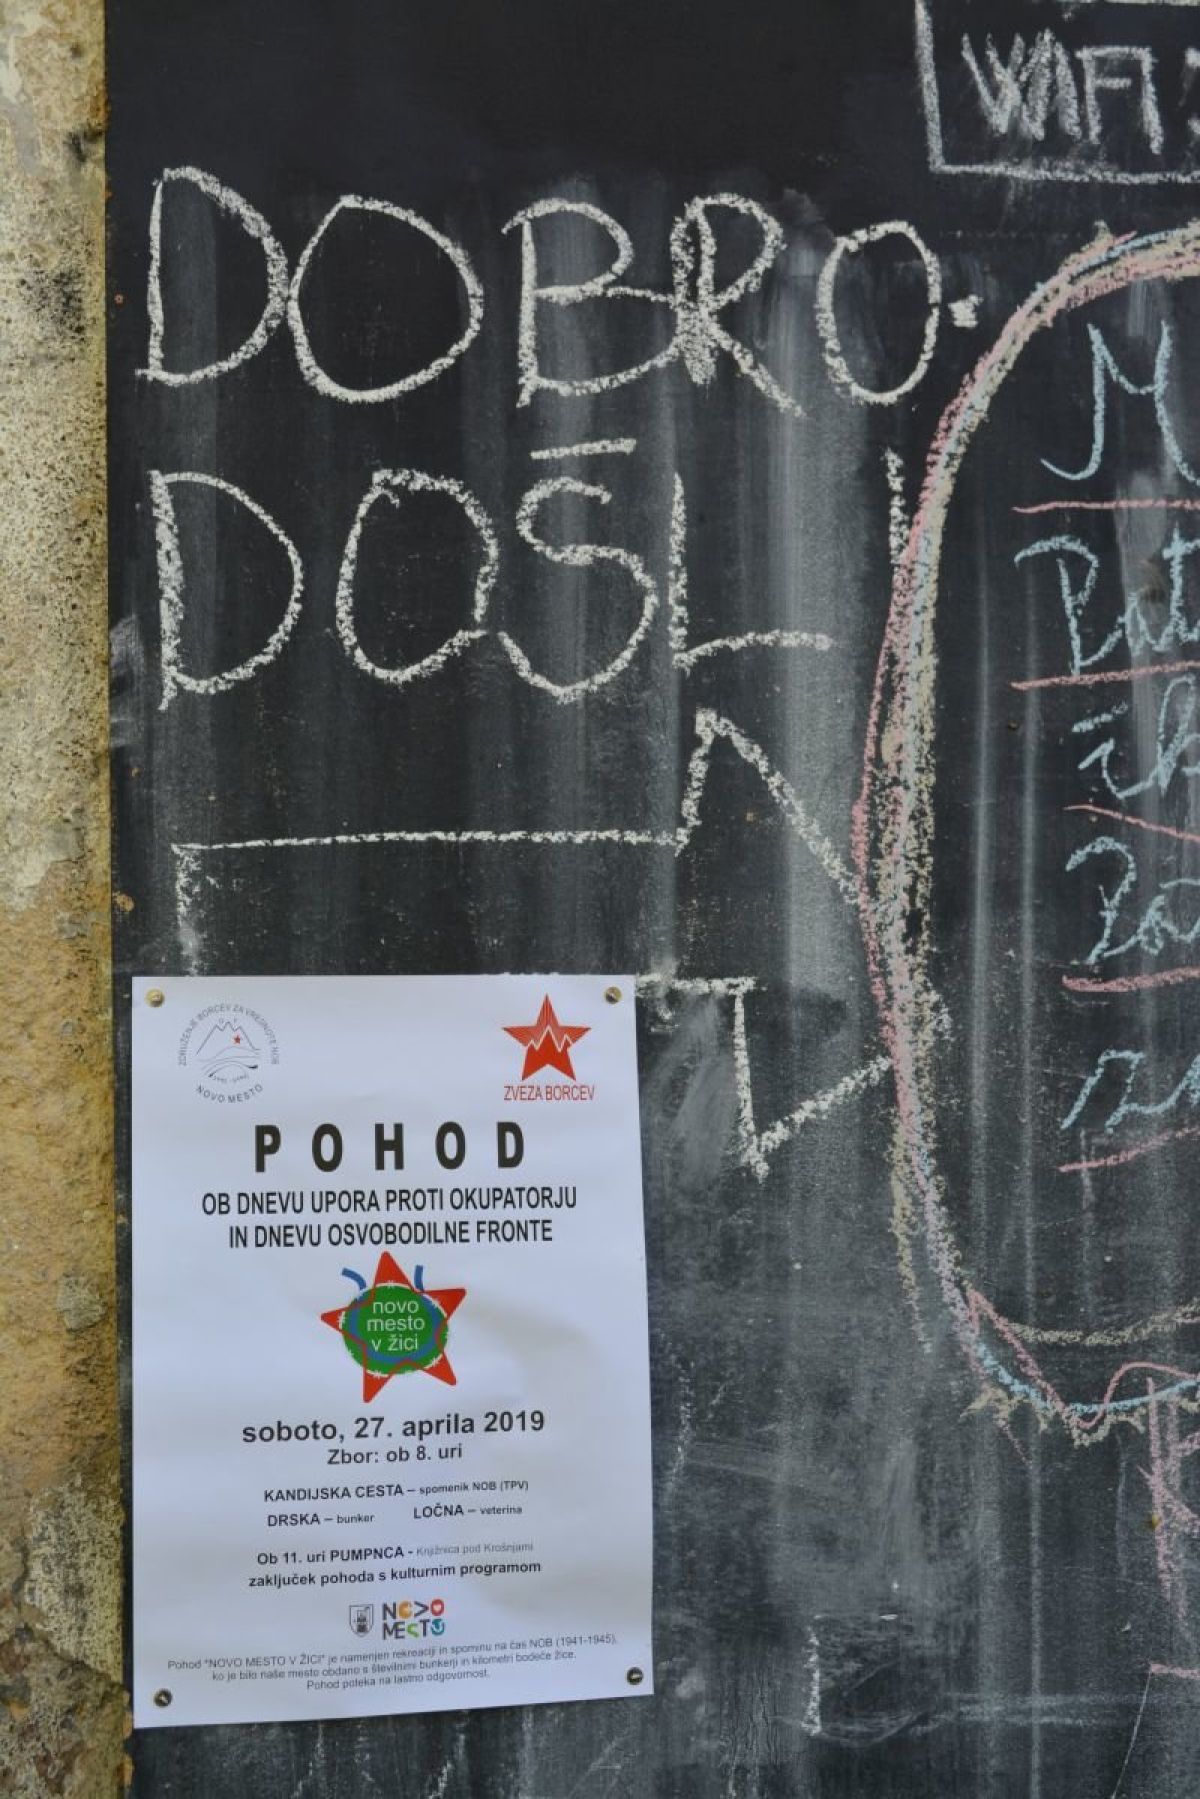 WIFI
DOBRO.
DOŠLI
ZDRUŽENJE BORCEV ZA VREDNOTE NOB
NOVO MESTO
ZVEZA BORCEV
POHOD
OB DNEVU UPORA PROTI OKUPATORJU
IN DNEVU OSVOBODILNE FRONTE
novo
mesto
v žici
soboto, 27. aprila 2019
Zbor: ob 8. uri
KANDIJSKA CESTA – spomenik NOB (TPV)
DRSKA – bunker LOČNA – veterina
Ob 11. uri PUMPNCA - Knjižnica pod Krošnjami
zaključek pohoda s kulturnim programom
NOVO
MESTO
Pohod "NOVO MESTO V ŽICI" je namenjen rekreaciji in spominu na čas NOB (1941-1945),
ko je bilo naše mesto obdano s številnimi bunkerji in kilometri bodeče žice.
Pohod poteka na lastno odgovornost.